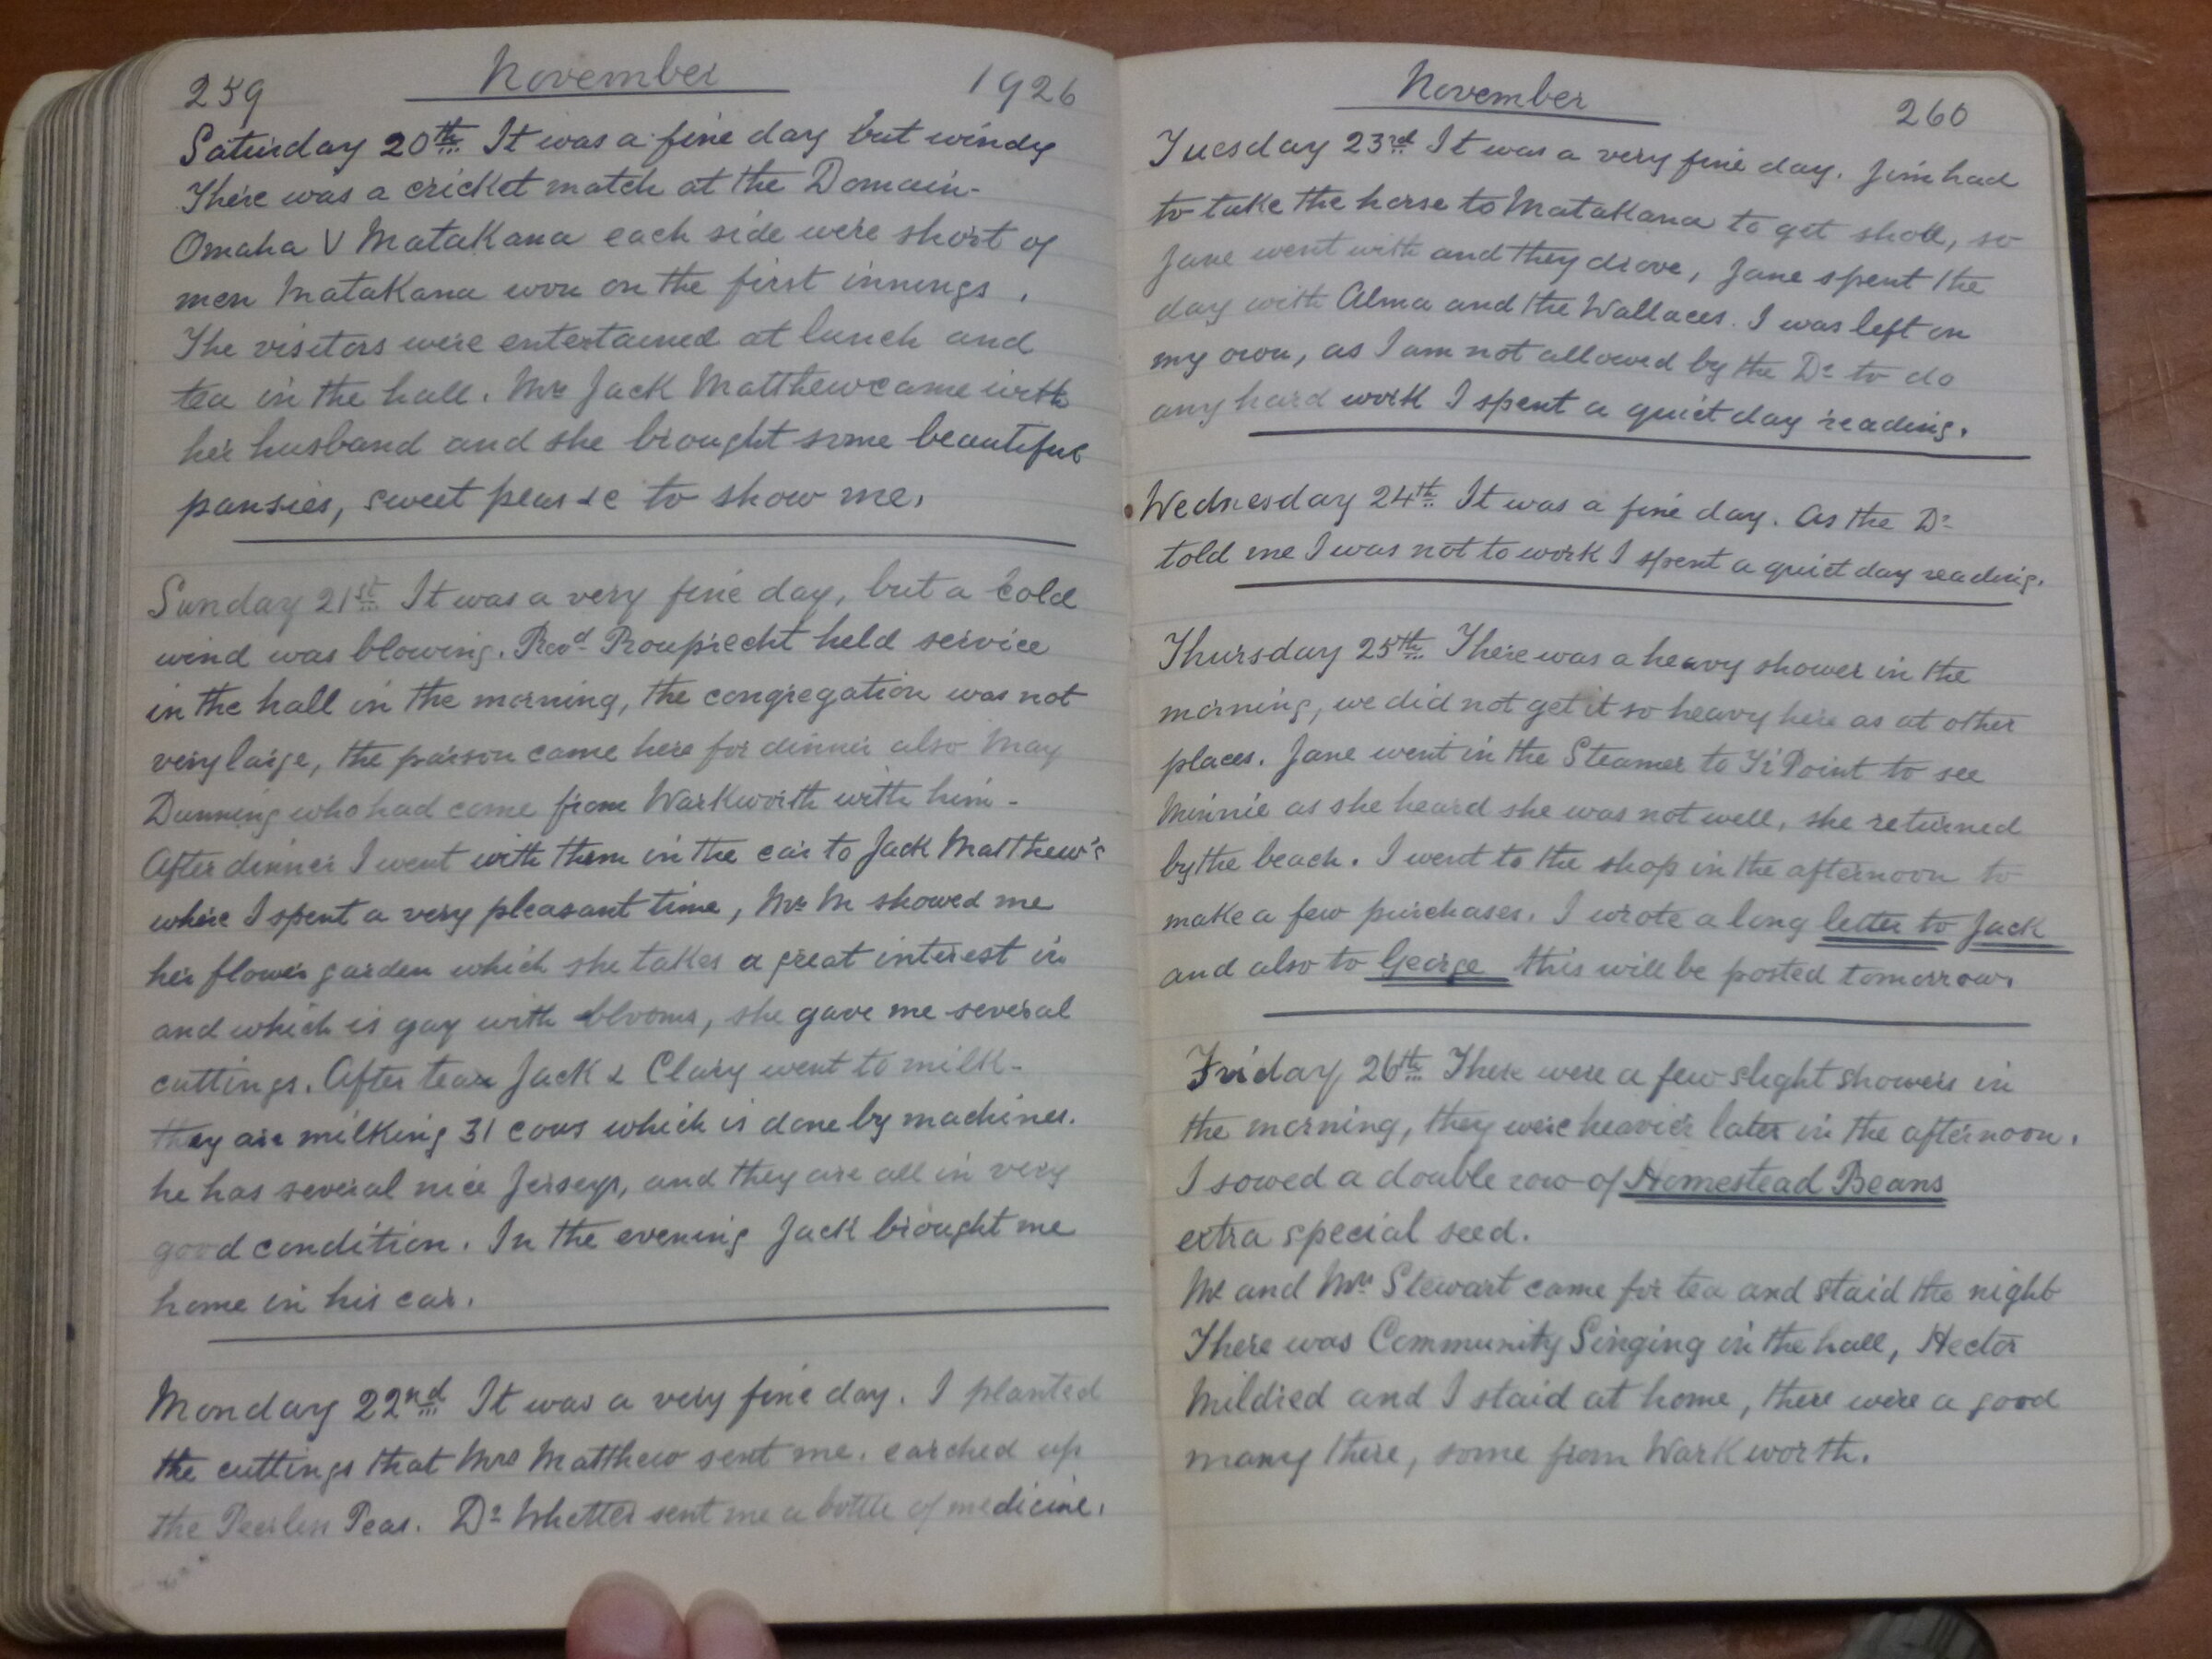 259 November 1926
Saturday 20th It was a fine day but windy
There was a cricket match at the Domain-
Omaha V Matakana each side were short of
men Matakana won on the first innings.
The visitors were entertained at lunch and
tea in the hall. Mrs Jack Matthew came with
her husband and she brought some beautiful
pansies, sweet peas &c to show me.
Sunday 21st It was a very fine day, but a cold
wind was blowing. Revd Rouprecht held service
in the hall in the morning, the congregation was not
very large, the parson came here for dinner also May
Dunning who had come from Warkworth with him-
After dinner I went with them in the car to Jack Matthew's
where I spent a very pleasant time, Mrs M showed me
her flower garden which she takes a great interest in
and which is gay with blooms, she gave me several
cuttings. After tea Jack & Clary went to milk-
they are milking 31 cows which is done by machines.
he has several nice Jerseys, and they are all in very
good condition. In the evening Jack brought me
home in his car.
Monday 22nd It was a very fine day. I planted
the cuttings that Mrs Matthew sent me. earthed up
the Peerless Peas. Dr Whetter sent me a bottle of medicine.
November 260
Tuesday 23rd It was a very fine day. Jim had
to take the horse to Matakana to get shod, so
Jane went with and they drove, Jane spent the
day with Alma and the Wallaces. I was left on
my own, as I am not allowed by the Dr to do
any hard work I spent a quiet day reading.
Wednesday 24th It was a fine day. As the Dr
told me I was not to work I spent a quiet day reading.
Thursday 25th There was a heavy shower in the
morning, we did not get it so heavy here as at other
places. Jane went in the Steamer to Ti Point to see
Minnie as she heard she was not well, she returned
by the beach. I went to the shop in the afternoon to
make a few purchases. I wrote a long letter to Jack
and also to George this will be posted tomorrow.
Friday 26th There were a few slight showers in
the morning, they were heavier later in the afternoon.
I sowed a double row of Homestead Beans
extra special seed.
Mr and Mrs Stewart came for tea and staid the night
There was Community Singing in the hall, Hector
Mildred and I staid at home, there were a good
many there, some from Warkworth.